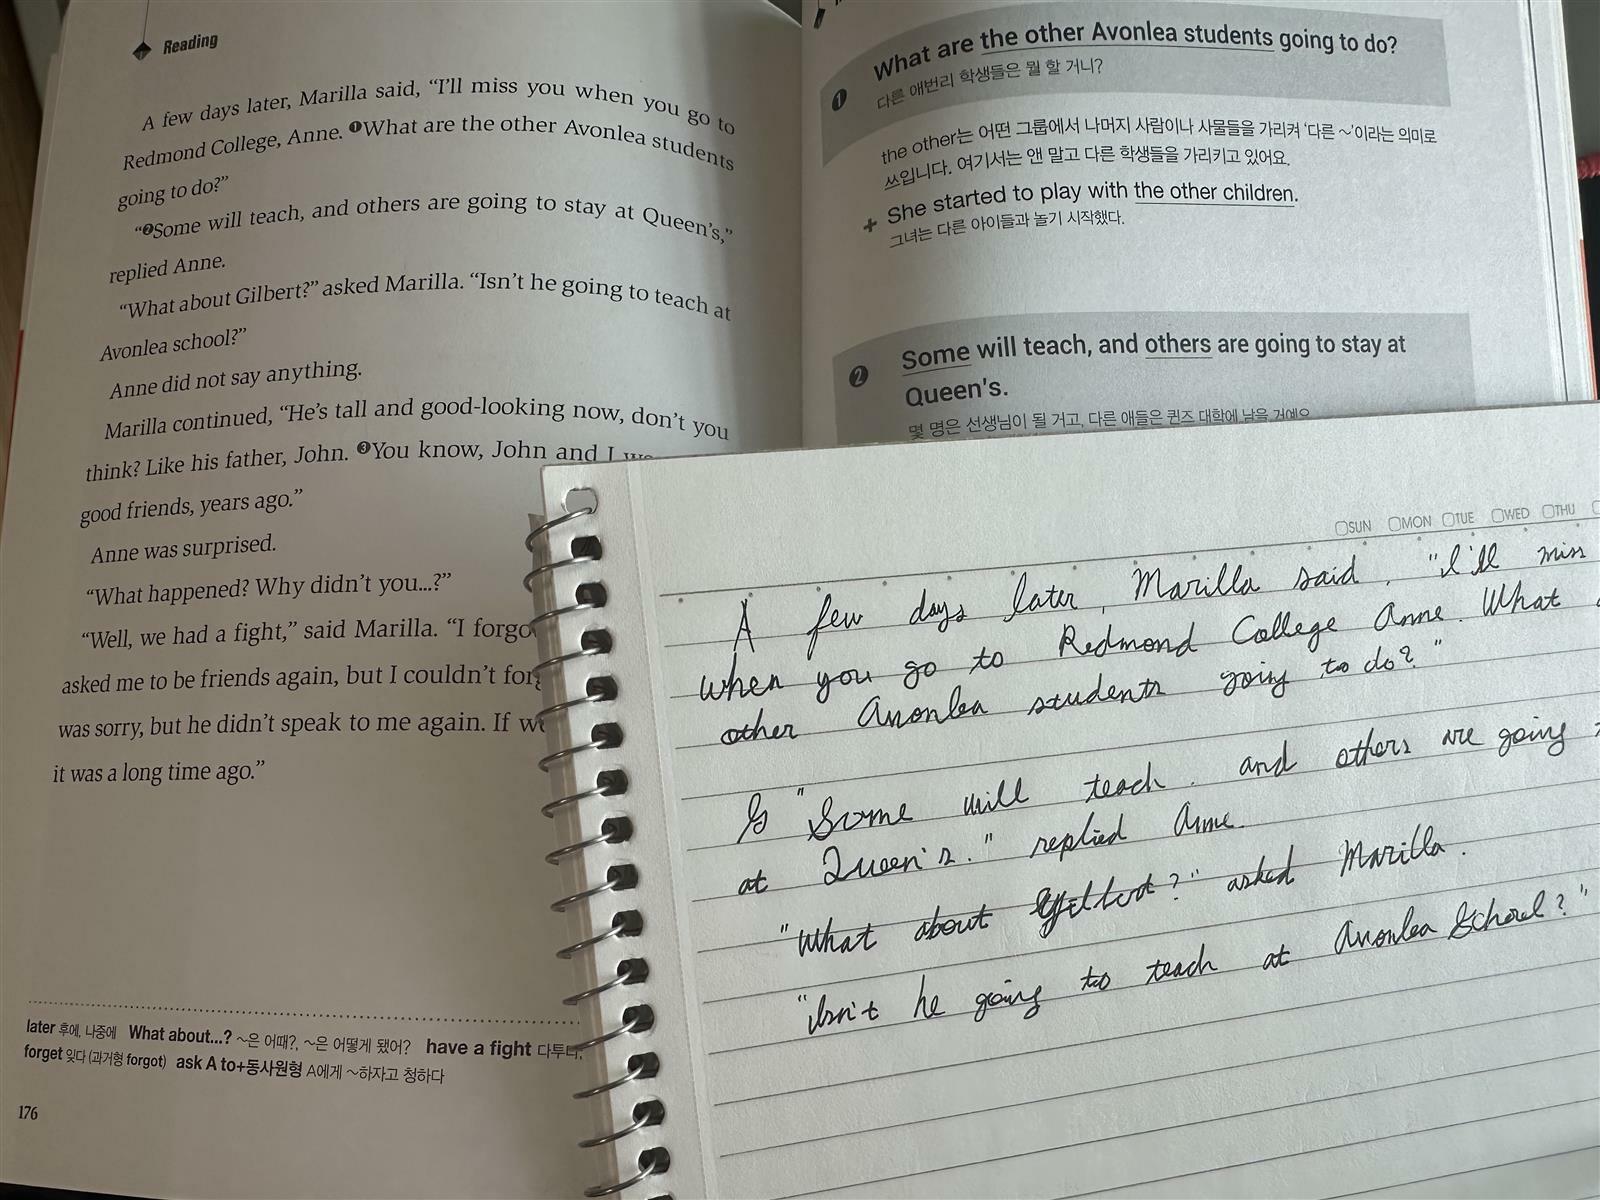 Reading
A few days later, Marilla said, “I’ll miss you when you go to
Redmond College, Anne. ❶What are the other Avonlea students
going to do?”
“❷Some will teach, and others are going to stay at Queen’s,”
replied Anne.
“What about Gilbert?” asked Marilla. “Isn’t he going to teach at
Avonlea school?”
Anne did not say anything.
Marilla continued, “He’s tall and good-looking now, don’t you
think? Like his father, John. ❸You know, John and I
good friends, years ago.”
Anne was surprised.
“What happened? Why didn’t you...?”
“Well, we had a fight,” said Marilla. “I
asked me to be friends again, but I couldn’t
was sorry, but he didn’t speak to me again. If
it was a long time ago.”
later 후에, 나중에 What about...? ~은 어때?, ~은 어떻게 됐어? have a fight 다투다,
forget 잊다 (과거형 forgot) ask A to+동사원형 A에게 ~하자고 청하다
176
❶ What are the other Avonlea students going to do?
다른 애번리 학생들은 뭘 할 거니?
the other는 어떤 그룹에서 나머지 사람이나 사물들을 가리켜 ‘다른 ~’이라는 의미로
쓰입니다. 여기서는 앤 말고 다른 학생들을 가리키고 있어요.
+ She started to play with the other children.
그녀는 다른 아이들과 놀기 시작했다.
❷ Some will teach, and others are going to stay at
Queen’s.
몇 명은 선생님이 될 거고, 다른 애들은 퀸즈 대학에 남을 거예요
SUN MON TUE WED THU
A few days later, Marilla said, "I'll miss
when you go to Redmond College Anne. What
other Avonlea students going to do?"
"Some will teach, and others are going
at Queen's." replied Anne.
"What about Gilbert?" asked Marilla.
"Isn't he going to teach at Avonlea School?"